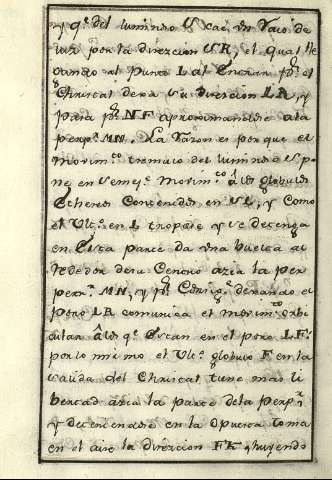 y q.e del luminoso S cae un rayo de
luz por la direzcion SR, el qual lle
gando al punto L al entrar p.r el
Christal dexa su direzcion LR, y
pasa p.r NF aproximandose a la
perp.r MN. La razon es porque el
movim.to tremulo del luminoso S po
ne en semej.te movim.to â los globulos
Ethereos contenidos en SL, y como
el Ult.o en L tropieze y se detenga
en esta parte da una buelta al
rededor de su centro azia la per
perp.r MN, y p.r consig.te dexando el
poro LR comunica el movim.to orbi
cular â los q.e estan en el poro LF:
por lo mismo el Ult.o globulo F en la
salida del Christal tiene mas li
bertad azia la parte de la perp.r
y deteniendose en la opuesta toma
en el aire la direzion FK, y huyendo